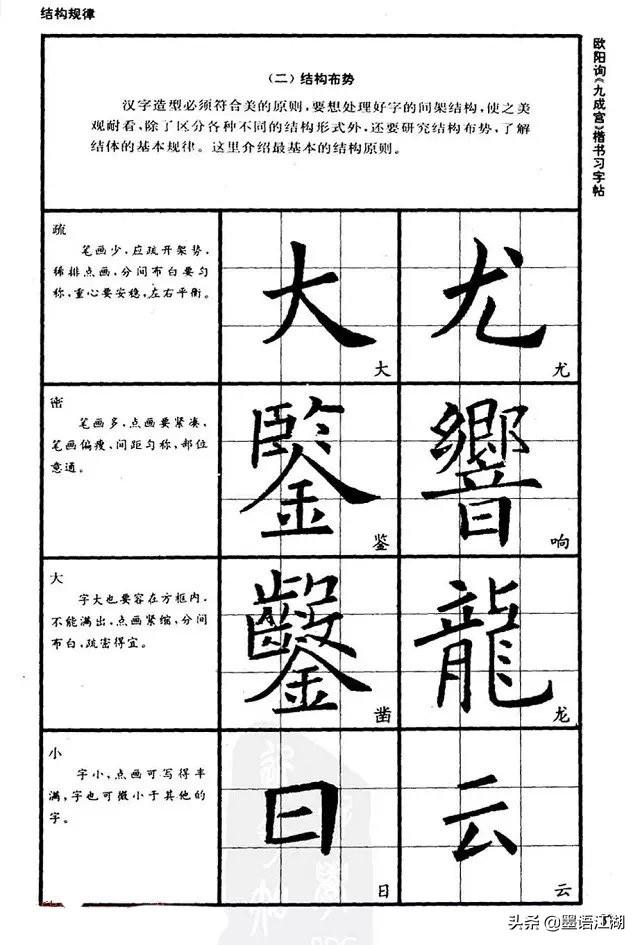 结构规律
欧阳询《九成宫》楷书习字帖
(二)结构布势
汉字造型必须符合美的原则,要想处理好字的间架结构,使之美
观耐看,除了区分各种不同的结构形式外,还要研究结构布势,了解
结体的基本规律。这里介绍最基本的结构原则。
疏
笔画少,应疏开架势,
稀排点画,分间布白要匀
称,重心要安稳,左右平衡。
大 尤
大 尤
密
笔画多,点画要紧凑,
笔画偏瘦,间距匀称,部位
意通。
鑒 響
鉴 响
大
字大也要容在方框内,
不能满出,点画紧缩,分间
布白,疏密得宜。
鑿 龍
凿 龙
小
字小,点画可写得丰
满,字也可微小于其他的
字。
日 云
日 云
头条 @墨语江湖